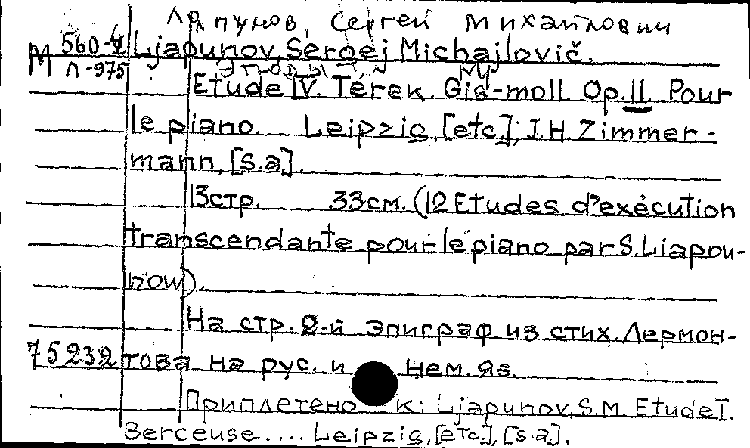 Ляпунов, Сергей Михайлович
М 560-4 Ljapunov, Sergej Michajlovič.
Л-975
Etude IV. Térek. Gis-moll. Op. 11. Pour
le piano. Leipzig, [etc.], J.H. Zimmer-
mann, [s.a.]
13 стр. 33 см. (12 Etudes d'exécution
transcendante pour le piano par S. Liapou-
now).
На стр. 2-й эпиграф из стих. Лермон-
75232 това на рус. и нем. яз.
Приплетено к: Ljapunov, S.M. Etude I.
Berceuse.... Leipzig, [etc.], [s.a.].